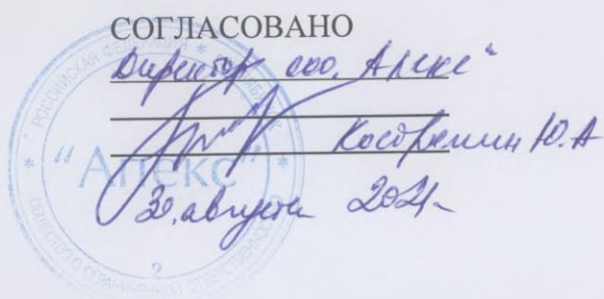 СОГЛАСОВАНО
Директор ООО "Апекс"
Ю.А
30 августа 2021
РОССИЙСКАЯ ФЕДЕРАЦИЯ
"Апекс"
ОБЩЕСТВО С ОГРАНИЧЕННОЙ ОТВЕТСТВЕННОСТЬЮ
2